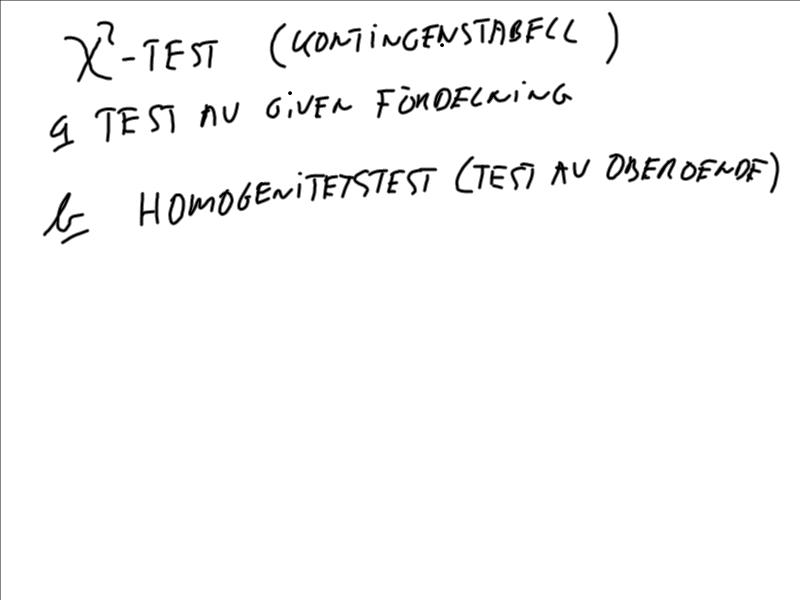 χ²-TEST (KONTINGENSTABELL)
a TEST AV GIVEN FÖRDELNING
b HOMOGENITETSTEST (TEST AV OBEROENDE)